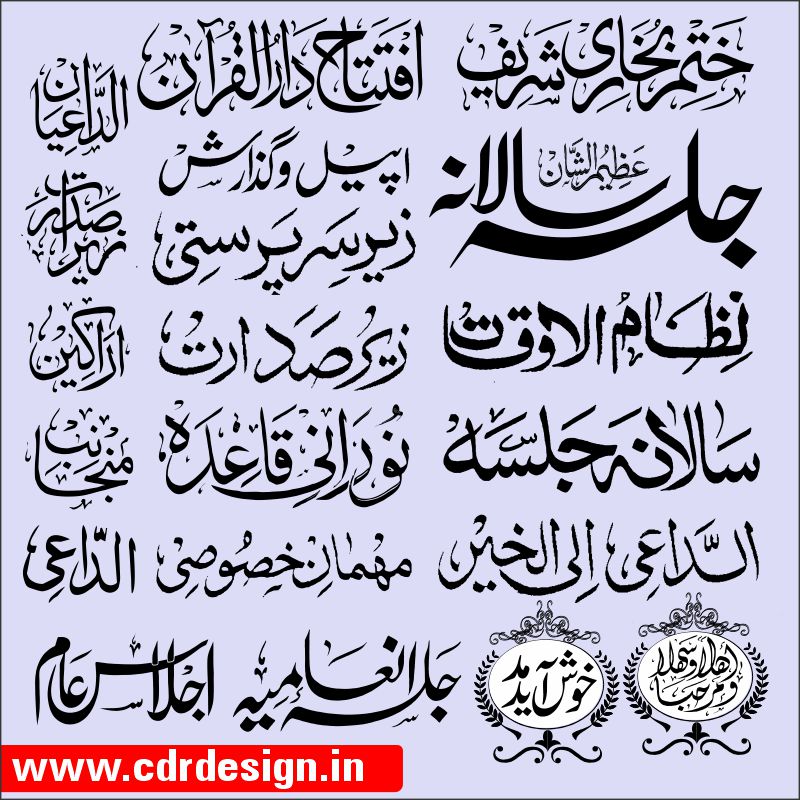 ختم بخاری شریف
افتتاح دار القرآن
الداعیان
عظیم الشان
جلسہ سالانہ
اپیل و گذارش
زیر صدارت
زیر سرپرستی
نظام الاوقات
زیر صدارت
اراکین
سالانہ جلسہ
نورانی قاعدہ
منجانب
الداعی الی الخیر
مہمان خصوصی
الداعی
اھلا و سھلا و مرحبا
خوش آمدید
جلسہ انعامیہ
اجلاس عام
www.cdrdesign.in